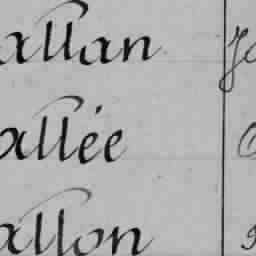 allan
allée
allon